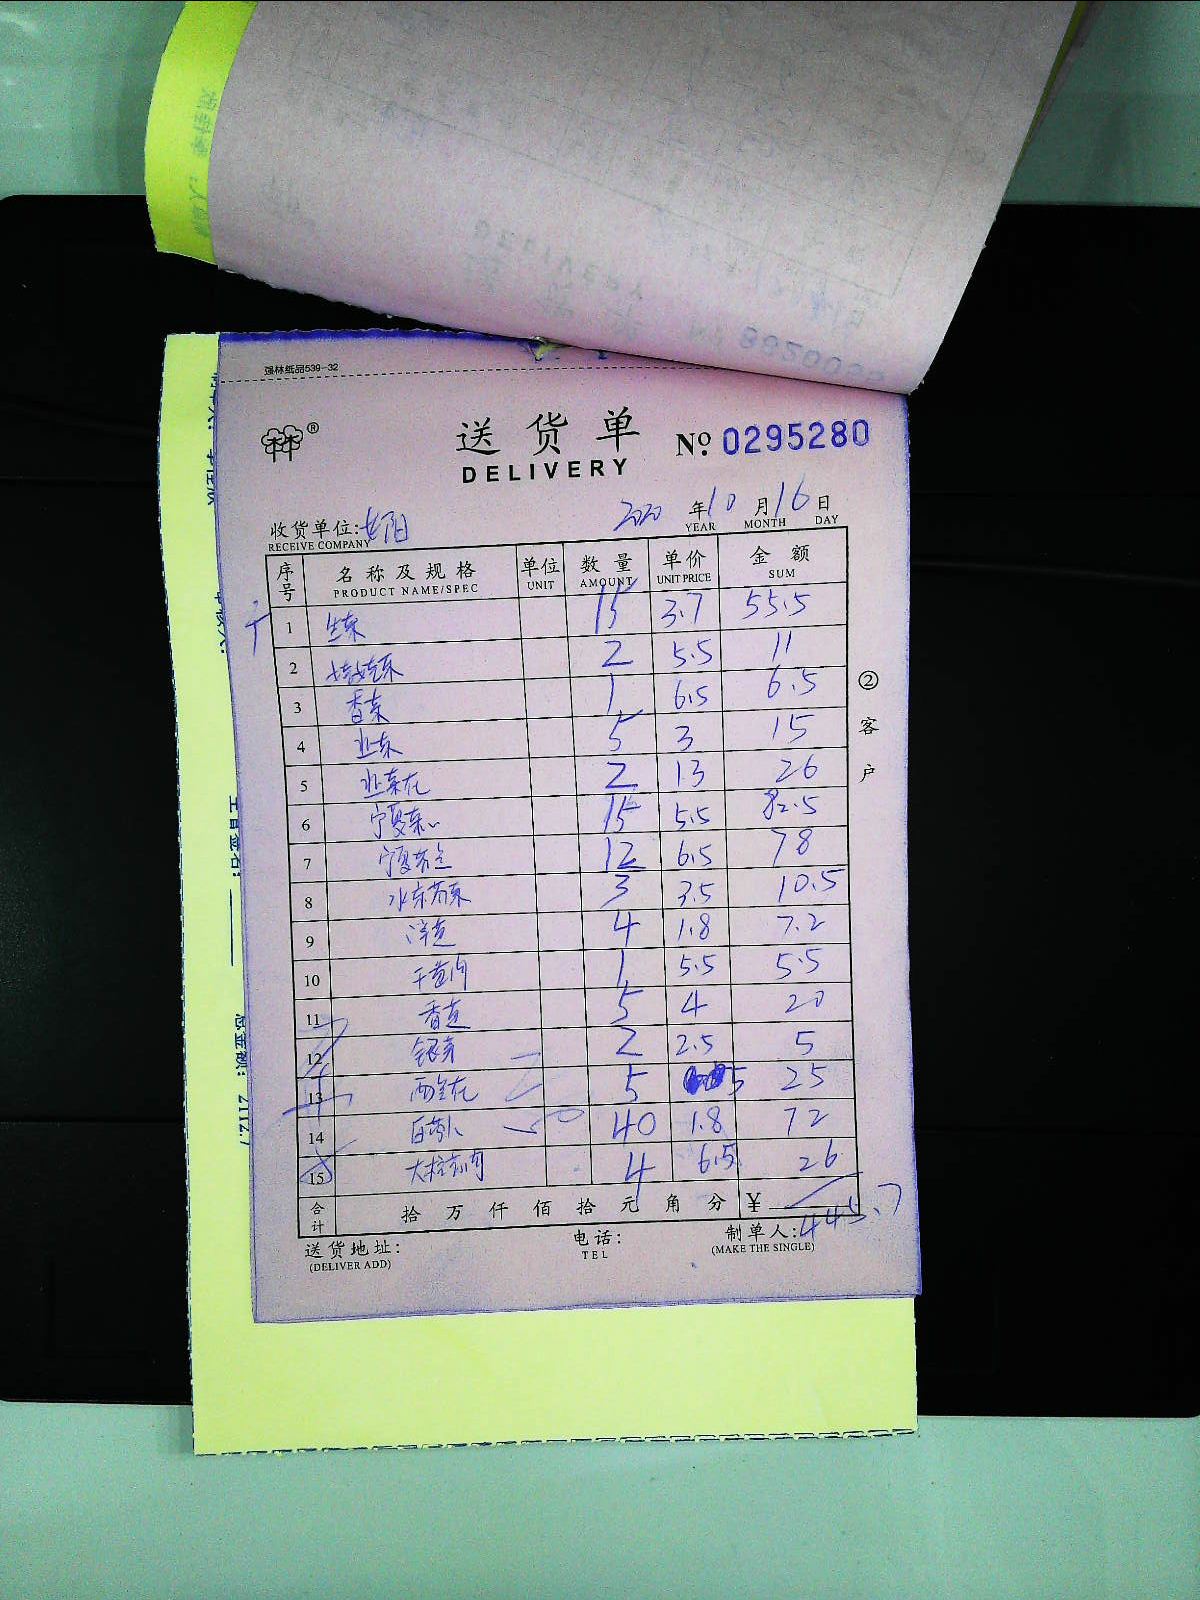 强林纸品539-32
林林®
送货单 № 0295280
DELIVERY
收货单位: 2020 年 10 月 16 日
RECEIVE COMPANY YEAR MONTH DAY
序号 名称及规格 单位 数量 单价 金额
PRODUCT NAME/SPEC UNIT AMOUNT UNIT PRICE SUM
1 生菜 15 3.7 55.5
2 娃娃菜 2 5.5 11
3 香菜 1 6.5 6.5
4 韭菜 5 3 15
5 韭菜花 2 13 26
6 宁夏菜心 15 5.5 82.5
7 宁夏 12 6.5 78
8 水东芥菜 3 3.5 10.5
9 洋葱 4 1.8 7.2
10 干葱肉 1 5.5 5.5
11 香葱 5 4 20
12 银芽 2 2.5 5
13 西兰花 5 5 25
14 白萝卜 40 1.8 72
15 4 6.5 26
合计 拾 万 仟 佰 拾 元 角 分 ¥ 445.7
送货地址: 电话: 制单人:
(DELIVER ADD) TEL (MAKE THE SINGLE)
② 客户
总金额: 2112.7